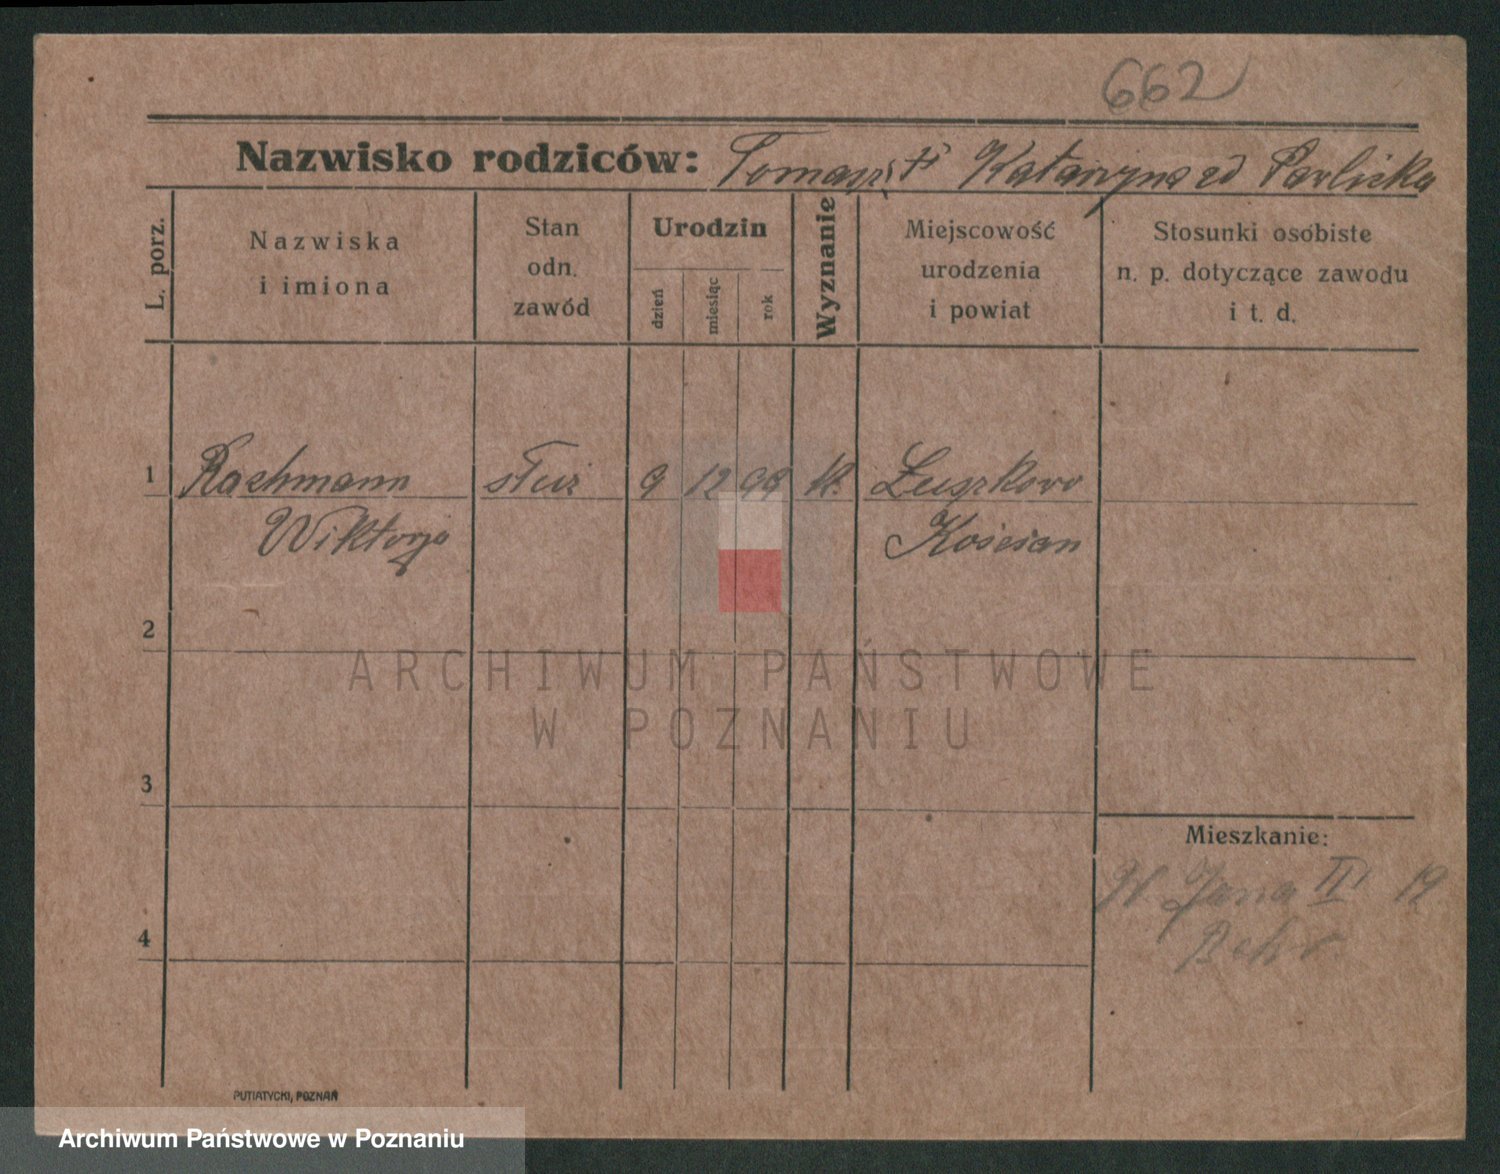 662
Nazwisko rodziców: Tomasz i Katarzyna zd Pavlicka
L. porz.
Nazwiska
i imiona
Stan
odn.
zawód
Urodzin
dzień
miesiąc
rok
Wyznanie
Miejscowość
urodzenia
i powiat
Stosunki osobiste
n. p. dotyczące zawodu
i t. d.
1 Rachmann służ 9 12 99 K.
Wiktorja Kościan
2
ARCHIWUM PAŃSTWOWE
W POZNANIU
3
Mieszkanie:
Jana III 19
4
PUTIATYCKI, POZNAŃ
Archiwum Państwowe w Poznaniu